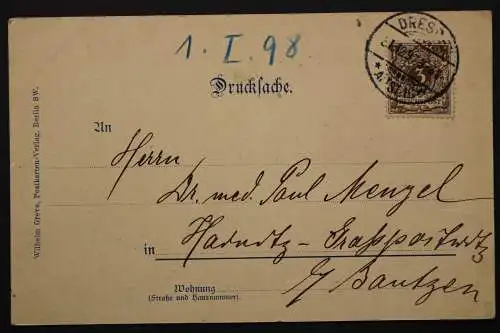 1. I. 98
DRESD
3
Drucksache.
An
Herrn
Dr. med. Paul Menzel
in Hainitz-Grosspostwitz
b/ Bautzen
Wohnung
(Straße und Hausnummer)
Wilhelm Greve, Postkarten-Verlag, Berlin SW.